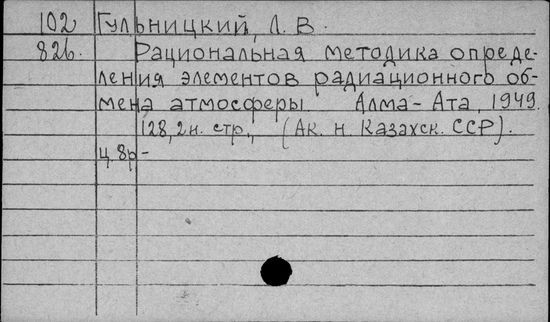 102 Гульницкий, Л. В.
826. Рациональная методика опреде-
ления элементов радиационного об-
мена атмосферы Алма-Ата, 1949.
128, 2н. стр., (Ак. н. Казахск. ССР).
ц. 8р-